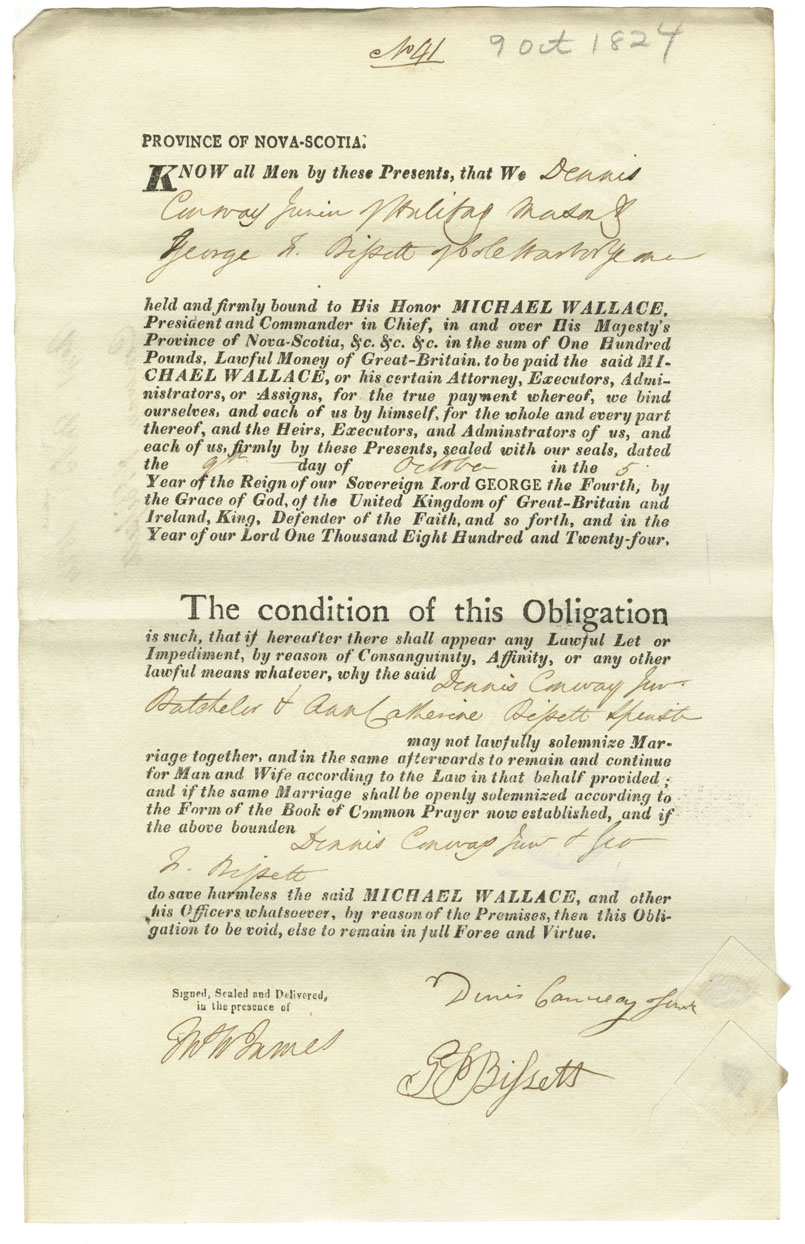 No 41
9 Oct 1824
PROVINCE OF NOVA-SCOTIA.
KNOW all Men by these Presents, that We Dennis
Conway Junior of Halifax Mason &
George F. Bissett of Cole Harbor Yeoman
held and firmly bound to His Honor MICHAEL WALLACE,
President and Commander in Chief, in and over His Majesty's
Province of Nova-Scotia, &c. &c. &c. in the sum of One Hundred
Pounds, Lawful Money of Great-Britain, to be paid the said MI-
CHAEL WALLACE, or his certain Attorney, Executors, Admi-
nistrators, or Assigns, for the true payment whereof, we bind
ourselves, and each of us by himself, for the whole and every part
thereof, and the Heirs, Executors, and Adminstrators of us, and
each of us, firmly by these Presents, sealed with our seals, dated
the 9th day of October in the 5
Year of the Reign of our Sovereign Lord GEORGE the Fourth, by
the Grace of God, of the United Kingdom of Great-Britain and
Ireland, King, Defender of the Faith, and so forth, and in the
Year of our Lord One Thousand Eight Hundred and Twenty-four.
The condition of this Obligation
is such, that if hereafter there shall appear any Lawful Let or
Impediment, by reason of Consanguinity, Affinity, or any other
lawful means whatever, why the said Dennis Conway Junr
Batchelor & Ann Catherine Bissett Spinster
may not lawfully solemnize Mar-
riage together, and in the same afterwards to remain and continue
for Man and Wife according to the Law in that behalf provided;
and if the same Marriage shall be openly solemnized according to
the Form of the Book of Common Prayer now established, and if
the above bounden Dennis Conway Junr & Geo
F. Bissett
do save harmless the said MICHAEL WALLACE, and other
his Officers whatsoever, by reason of the Premises, then this Obli-
gation to be void, else to remain in full Force and Virtue.
Signed, Sealed and Delivered,
in the presence of
James
Denis Conway Junr
G F Bissett